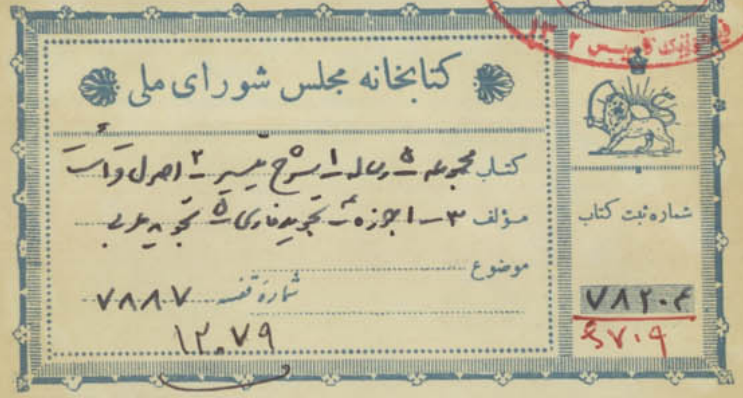 کتابخانه مجلس شورای ملی
کتاب مجموعه ۵ رساله ۱ـ شرح تیسیر ۲ـ اصول قرائت
مؤلف ۳ـ اجازه ۴ـ تجوید فارسی ۵ـ تجوید عربی
موضوع
شماره قفسه ۷۸۸۷
۱۲۰۷۹
شماره ثبت کتاب
۷۸۲۰۴
۶۷۰۹